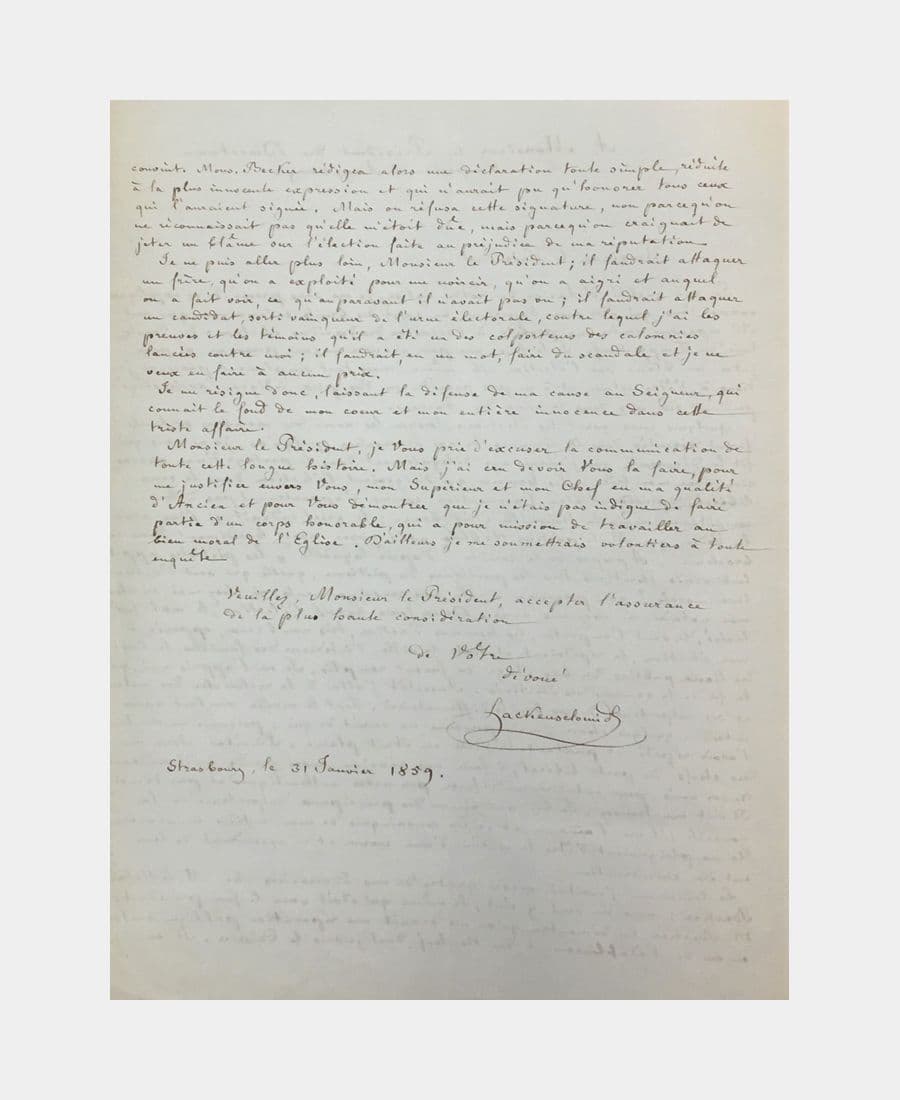 convint. Mons. Becker rédigea alors une déclaration toute simple, réduite
à la plus innocente expression et qui n'aurait pu qu'honorer tous ceux
qui l'auraient signée. Mais on refusa cette signature, non parcequ'on
ne reconnaissait pas qu'elle m'étoit dûe, mais parcequ'on craignait de
jeter un blâme sur l'élection faite au préjudice de ma réputation
Je ne puis aller plus loin, Monsieur le Président; il faudrait attaquer
un frère, qu'on a exploité pour me noircir, qu'on a aigri et auquel
on a fait voir, ce qu'auparavant il n'avait pas vu; il faudrait attaquer
un candidat, sorti vainqueur de l'urne électorale, contre lequel j'ai les
preuves et les témoins qu'il a été un des colporteurs des calomnies
lancées contre moi; il faudrait, en un mot, faire du scandale et je ne
veux en faire à aucun prix.
Je me résigne donc, laissant la défense de ma cause au Seigneur, qui
connait le fond de mon coeur et mon entière innocence dans cette
triste affaire.
Monsieur le Président, je Vous prie d'excuser la communication de
toute cette longue histoire. Mais j'ai cru devoir Vous la faire, pour
me justifier envers Vous, mon Supérieur et mon Chef en ma qualité
d'Ancien et pour Vous démontrer que je n'étais pas indigne de faire
partie d'un corps honorable, qui a pour mission de travailler au
bien moral de l'Eglise. D'ailleurs je me soumettrais volontiers à toute
enquête
Veuillez, Monsieur le Président, accepter l'assurance
de la plus haute considération
de Vôtre
dévoué
Hackenschmidt
Strasbourg, le 31 Janvier 1859.